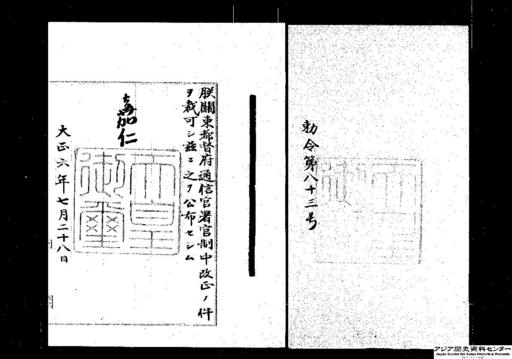 勅令第八十三号
朕關東都督府通信官署官制中改正ノ件
ヲ裁可シ茲ニ之ヲ公布セシム
嘉仁
天皇
御璽
大正六年七月二十八日
アジア歴史資料センター
Japan Center for Asian Historical Records